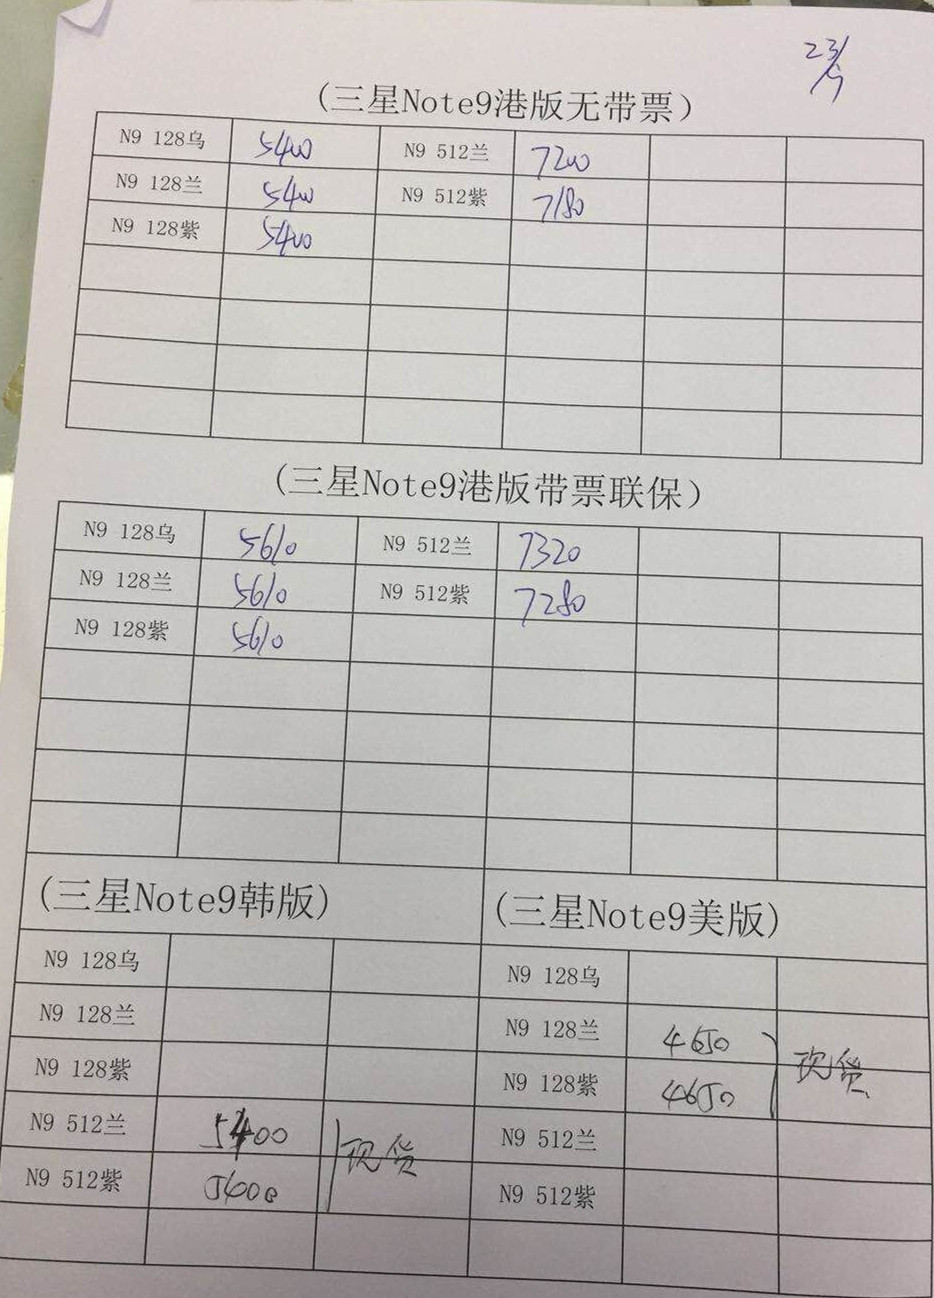 23/9
(三星Note9港版无带票)
N9 128乌 5400 N9 512兰 7200
N9 128兰 5400 N9 512紫 7180
N9 128紫 5400
(三星Note9港版带票联保)
N9 128乌 5610 N9 512兰 7320
N9 128兰 5610 N9 512紫 7280
N9 128紫 5610
(三星Note9韩版)
N9 128乌
N9 128兰
N9 128紫
N9 512兰 5400 现货
N9 512紫 5600
(三星Note9美版)
N9 128乌
N9 128兰 4650 现货
N9 128紫 4650
N9 512兰
N9 512紫